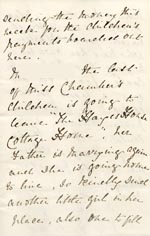 sending the money this
week for the Children's
Payments boarded out
here.
The last
of Miss Chamber's
Children is going to
leave "The Harpers
Cottage Home", her
Father is marrying again
and she is going home
to live, so kindly send
another little girl in her
place, also one to fill